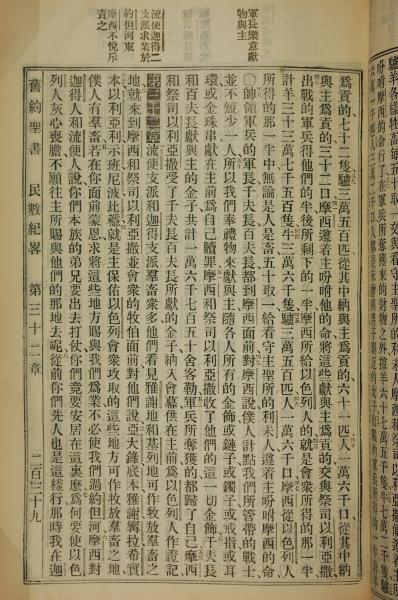 軍長樂意獻
物與主
流便迦得二
支派求業於
約但河東
摩西不悅斥
責之
爲貢的七十二隻驢三萬五百匹從其中納與主爲貢的六十一匹人一萬六千口從其中納
與主爲貢的三十二口摩西遵着主吩咐他的命將這些獻與主爲貢的交與祭司以利亞撒
出戰的軍兵得他們的半後所剩下的一半摩西所給以色列人的就是會衆所得的那一半
計羊三十三萬七千五百隻牛三萬六千隻驢三萬五百匹人一萬六千口摩西從以色列人
所得的那一半中無論是人是畜五十取一給看守主聖所的利未人遵着主吩咐他的命
○帥領軍兵的軍長千夫長百夫長都到面前對摩西說僕人計點我們所管帶的戰士
並不短少一人所以我們奉禮物來獻與主隨各人所有的金飾或鏈子或鐲子或戒指或耳
環或金珠串獻在主前爲自己贖罪摩西和祭司以利亞撒收了他們的這一切金飾千夫長
和百夫長獻與主的金子共計一萬六千七百五十舍客勒軍兵所奪獲的都歸了自己摩西
和祭司以利亞撒受了千夫長百夫長所獻的金子納入會幕供在主前爲以色列人作證記
第三十二章流便支派和迦得支派羣畜衆多他們看見雅謝地和基列地可作牧放羣畜之
地就來到摩西和祭司以利亞撒並會衆的牧伯面前對他們說亞大錄底本雅謝寧拉希實
本以利亞利示班尼波比穩就是主保佑以色列會衆攻取的這些地方可作牧放羣畜之地
僕人有羣畜若在你面前蒙恩求將這些地方賜與我們爲業不必使我們過約但河摩西對
迦得人和流便人說你們本族的弟兄要出去打仗你們竟要安居在這裏麼爲何要使以色
列人灰心喪膽不願往主所賜與他們的那地去呢從前你們先人也是這樣行那時我在迦
舊約聖書　民數紀畧　第三十二章　二百三十九